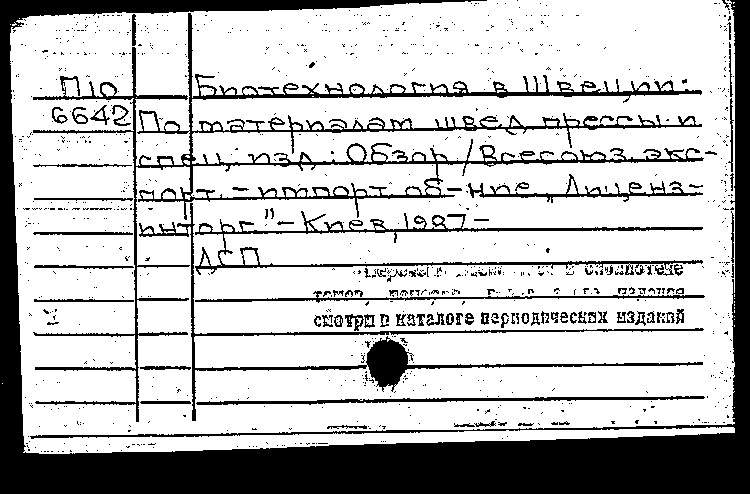 П10 Биотехнология в Швеции:
6642 По материалам швед. прессы и
спец. изд.: Обзор / Всесоюз. экс-
порт.-импорт. об-ние „Лиценз-
инторг". - Киев, 1987 -
ДСП
в библиотеке
томов, номеров, издания
смотри в каталоге периодических изданий